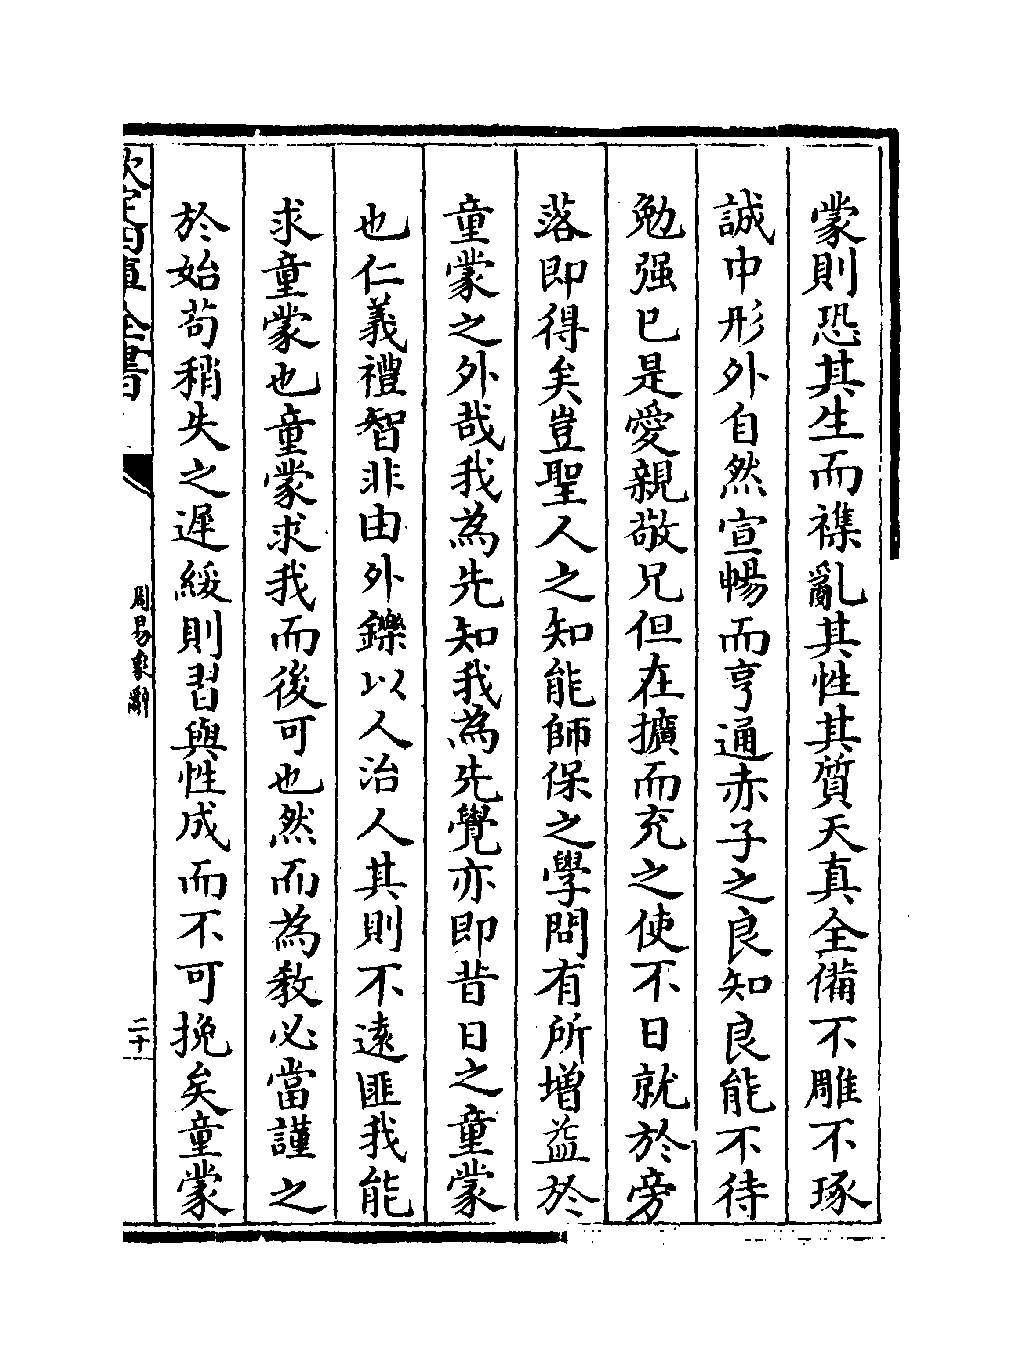 蒙則恐其生而襍亂其性其質天真全備不雕不琢
誠中形外自然宣暢而亨通赤子之良知良能不待
勉强已是愛親敬兄但在擴而充之使不日就於旁
落即得矣豈聖人之知能師保之學問有所增益於
童蒙之外哉我為先知我為先覺亦即昔日之童蒙
也仁義禮智非由外鑠以人治人其則不遠匪我能
求童蒙也童蒙求我而後可也然而為教必當謹之
於始苟稍失之遲緩則習與性成而不可挽矣童蒙
欽定四庫全書
周易象辭
二十